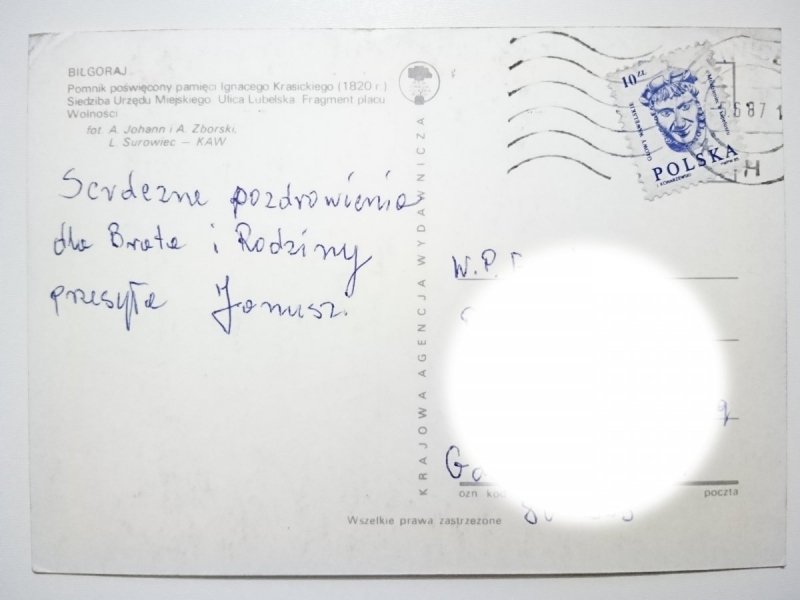 BIŁGORAJ
Pomnik poświęcony pamięci Ignacego Krasickiego (1820 r.)
Siedziba Urzędu Miejskiego. Ulica Lubelska. Fragment placu
Wolności
fot. A. Johann i A. Zborski,
L. Surowiec – KAW
Serdeczne pozdrowienia
dla Brata i Rodziny
przesyła Janusz.
KRAJOWA AGENCJA WYDAWNICZA
10 ZŁ
GŁOWY WAWELSKIE
POLSKA
6 87 1
H
W. P.
ozn kod
poczta
Wszelkie prawa zastrzeżone